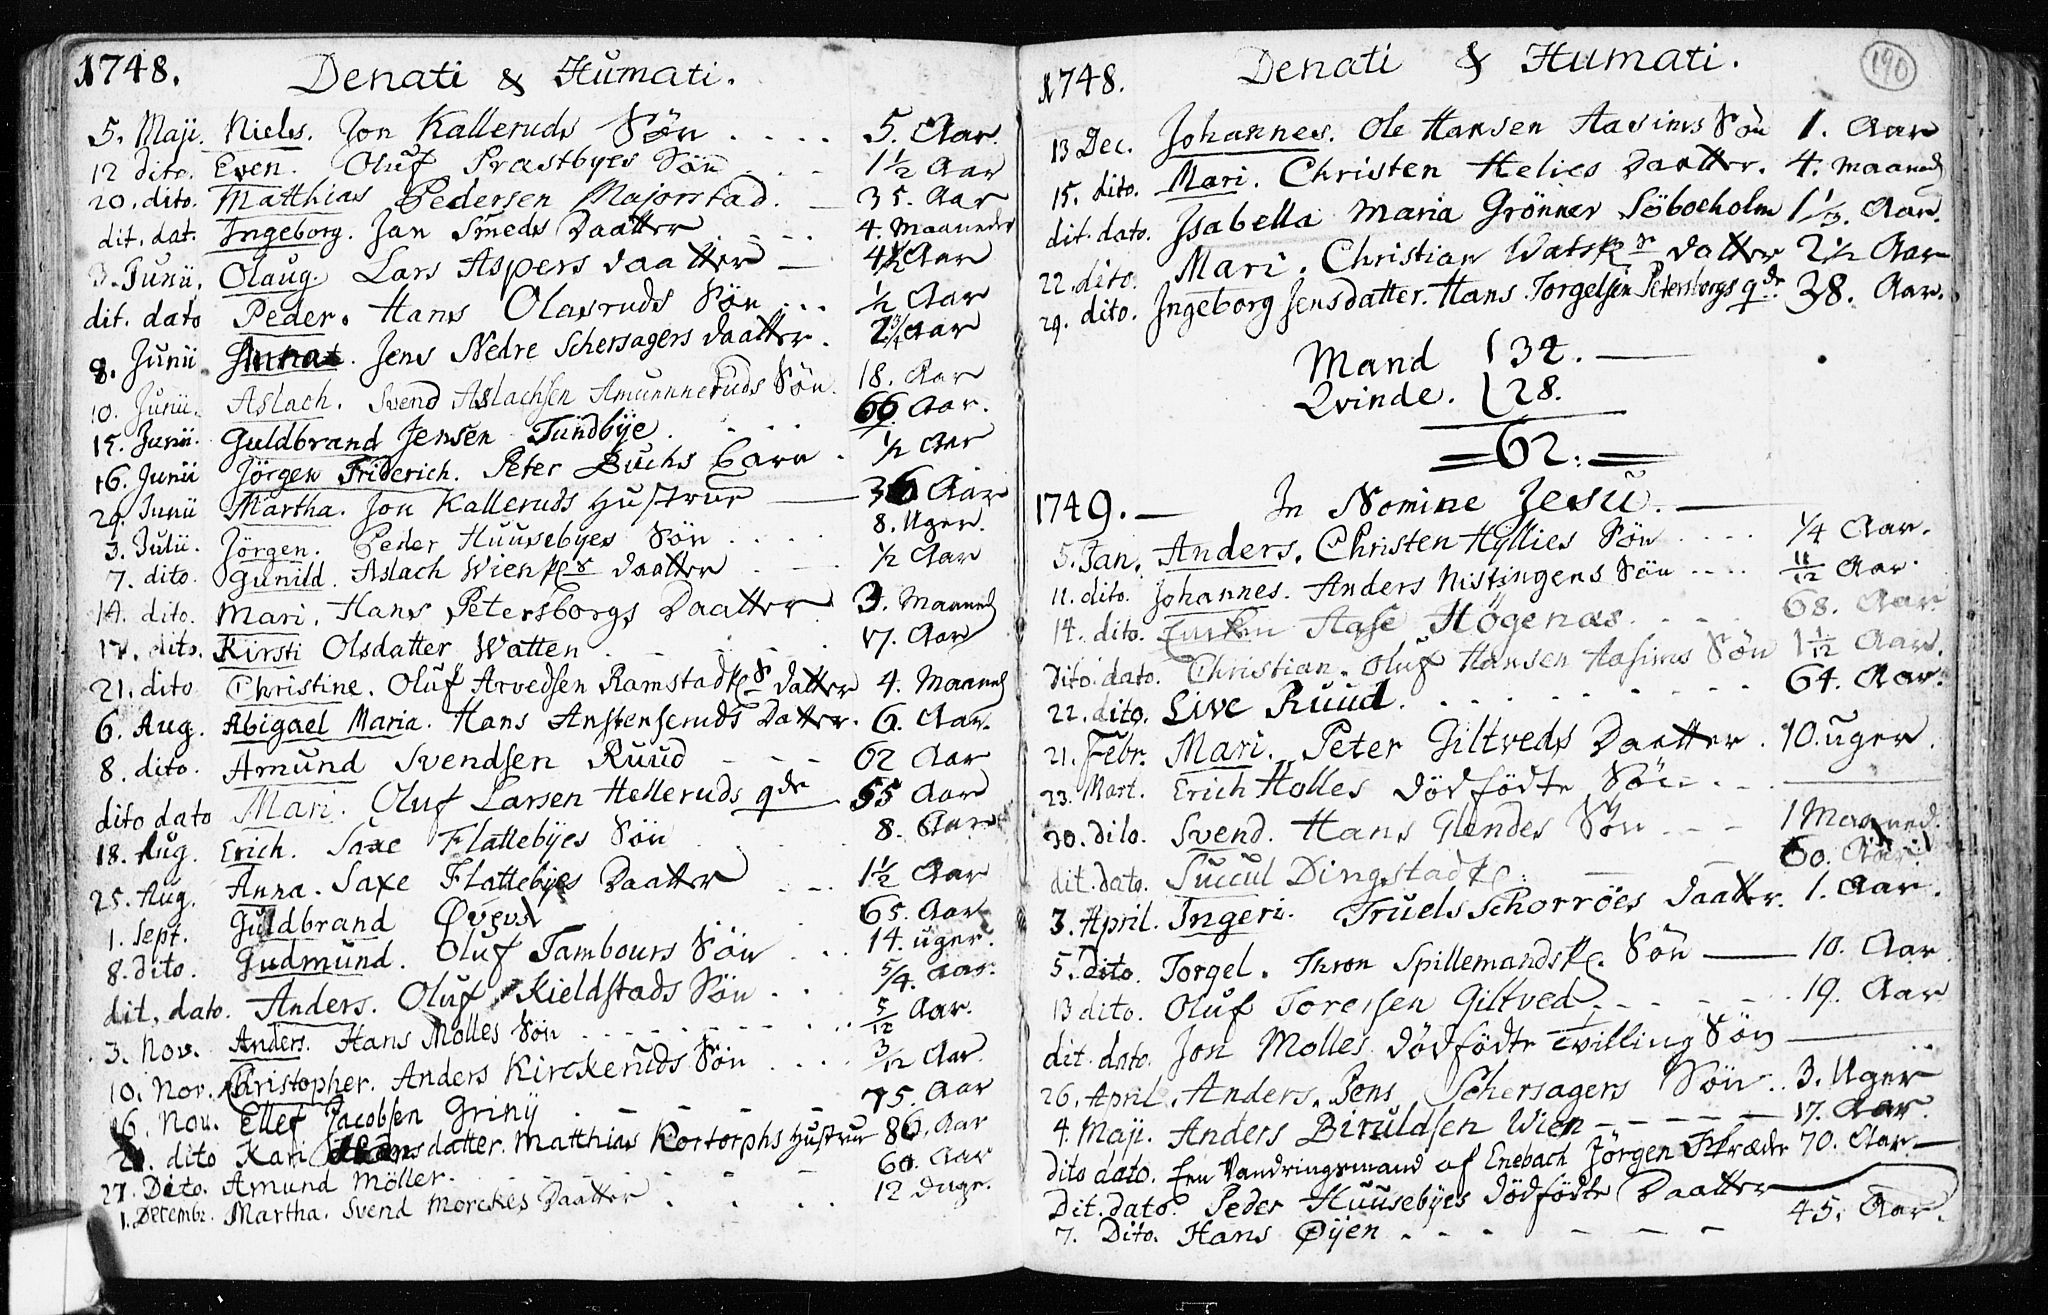 1748. Denati & Humati.
5. Maji. Niels. Jon Kalleruds Søn .... 5. Aar.
12 dito. Even. Oluf Prastbyes Søn - - 1½ Aar
20. dito. Matthias Pedersen Majorstad. — 35. Aar
dit. dat. Ingeborg. Jan Smeds Daatter .... 4. Maaneder
3. Junii. Olaug. Lars Aspers daatter — 4½ Aar
dit. dato Peder. Hans Olasruds Søn ... ½ Aar
8. Junii Jens Nedre Schersagers daatter. 2¾ Aar
10. Junii. Aslach. Svend Aslachsen Amunneruds Søn. 18. Aar
15. Junii. Guldbrand Jensen Tundbÿe .... 66 Aar.
16. Junii Jörgen Friderich. Peter Buchs Barn . ½ Aar
29. Junii Martha. Jon Kalleruds Hustrue — 36 Aar
3. Julii. Jörgen. Peder Huusebyes Søn .... 8. Uger.
7. dito. Gunild. Aslach Wienpr daatter . — . ½ Aar
14. dito. Mari. Hans Petersborgs Daatter 3. Maaned
17. dito. Kirsti Olsdatter Watten . - - - . 17. Aar
21. dito Christine. Oluf Arvedsen Ramstad datter 4. Maaned
6. Aug. Abigael Maria. Hans Anstenseruds Datter. 6. Aar.
8. dito. Amund Svendsen Ruud - - - 62 Aar
dito dato Mari. Oluf Larsen Helleruds qde 55 Aar
18. Aug. Erich. Saxe Flattebÿes Søn .... 8. Aar
25. Aug. Anna. Saxe Flattebÿes Daatter - - - 1½ Aar
1. Sept. Guldbrand . . . 65. Aar
8. dito. Gudmund. Oluf Tambours Søn ... 14. uger.
dit. dato. Anders. Oluf Kieldstads Søn ... 5/4. Aar.
3. Nov. Anders. Hans Molles Søn - - - - - - 5/12 Aar.
10. Nov. Christopher. Anders Kirckeruds Søn ... 3/12 Aar.
16. Nov. Ellef Jacobsen Grinÿ . - - - - - 75. Aar
dito Kari datter. Matthias Kortorphs Hustrue 86. Aar
27. Dito. Amund Möller. - - - - - 60. Aar
1. Decembr. Martha. Svend Morckes Daatter . - . . 12 dage.
190
1748. Denati & Humati.
13 Dec. Johannes. Ole Hansen Aasims Søn 1. Aar
15. dito. Mari. Christen Helies Daatter. 4. maaned
dit. dato. Isabella Maria Grönner Söboeholm 1⅓. Aar.
22. dito. Mari. Christian datter 2½ Aar
29. dito. Ingeborg Jensdatter. Hans Torgelsen Petersborgs qde 38. Aar.
Mand 34. —
Qvinde. 28.
62.
1749. — In Nomine Jesu. —
5. Jan. Anders. Christen Hÿllies Søn .... ¼ Aar.
11. dito. Johannes. Anders Nistingens Søn .... 11/12 Aar.
14. dito. Aase Högenæs. - - - 68. Aar.
Dito. dato. Christian. Oluf Hansen Aasims Søn 1 1/12 Aar.
22. dito. Live Ruud. . . - - - - - 64. Aar.
21. Febr. Mari. Peter Giltveds Daatter. 10. uger.
23. Mart. Erich Holles dödfödte Søn . - ———
30. dito. Svend. Hans Glendes Søn - - - 1 Maaned.
dit. dato. Dingstad — 60. Aar.
3. April. Ingeri. Truels Schorröes daatter. 1. Aar.
5. dito. Torgel. Thron Spillemands Søn —— 10. Aar
13 dito. Oluf Toresen Giltved. - - - - - . 19. Aar
dit. dato. Jon Molles dödfödte Tvilling Søn ———
26. April. Anders. Jens Schersagers Søn .. 3. Uger
4. Maji. Anders Biruldsen Wien - - - - - 17. Aar.
dito dato. Een Vandringsmand af Enebach Jörgen Skræder 70. Aar —
Dit. dato. Peder Huusebÿes dödfödte Daatter ———
7. Dito. Hans Øÿen - - - - - - 45. Aar.